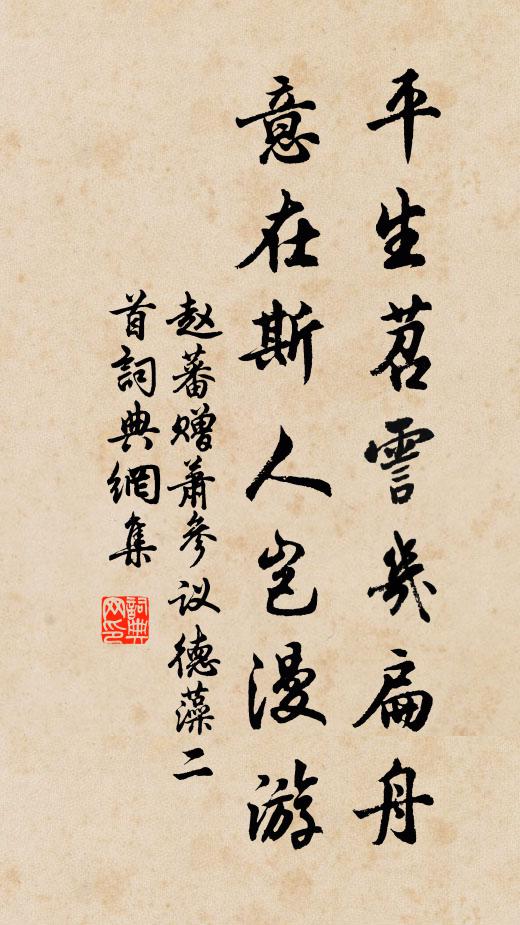 平生苕霅幾扁舟
意在斯人岂漫游
赵蕃赠蕭參议德藻二
首詞典網集
詞典网印